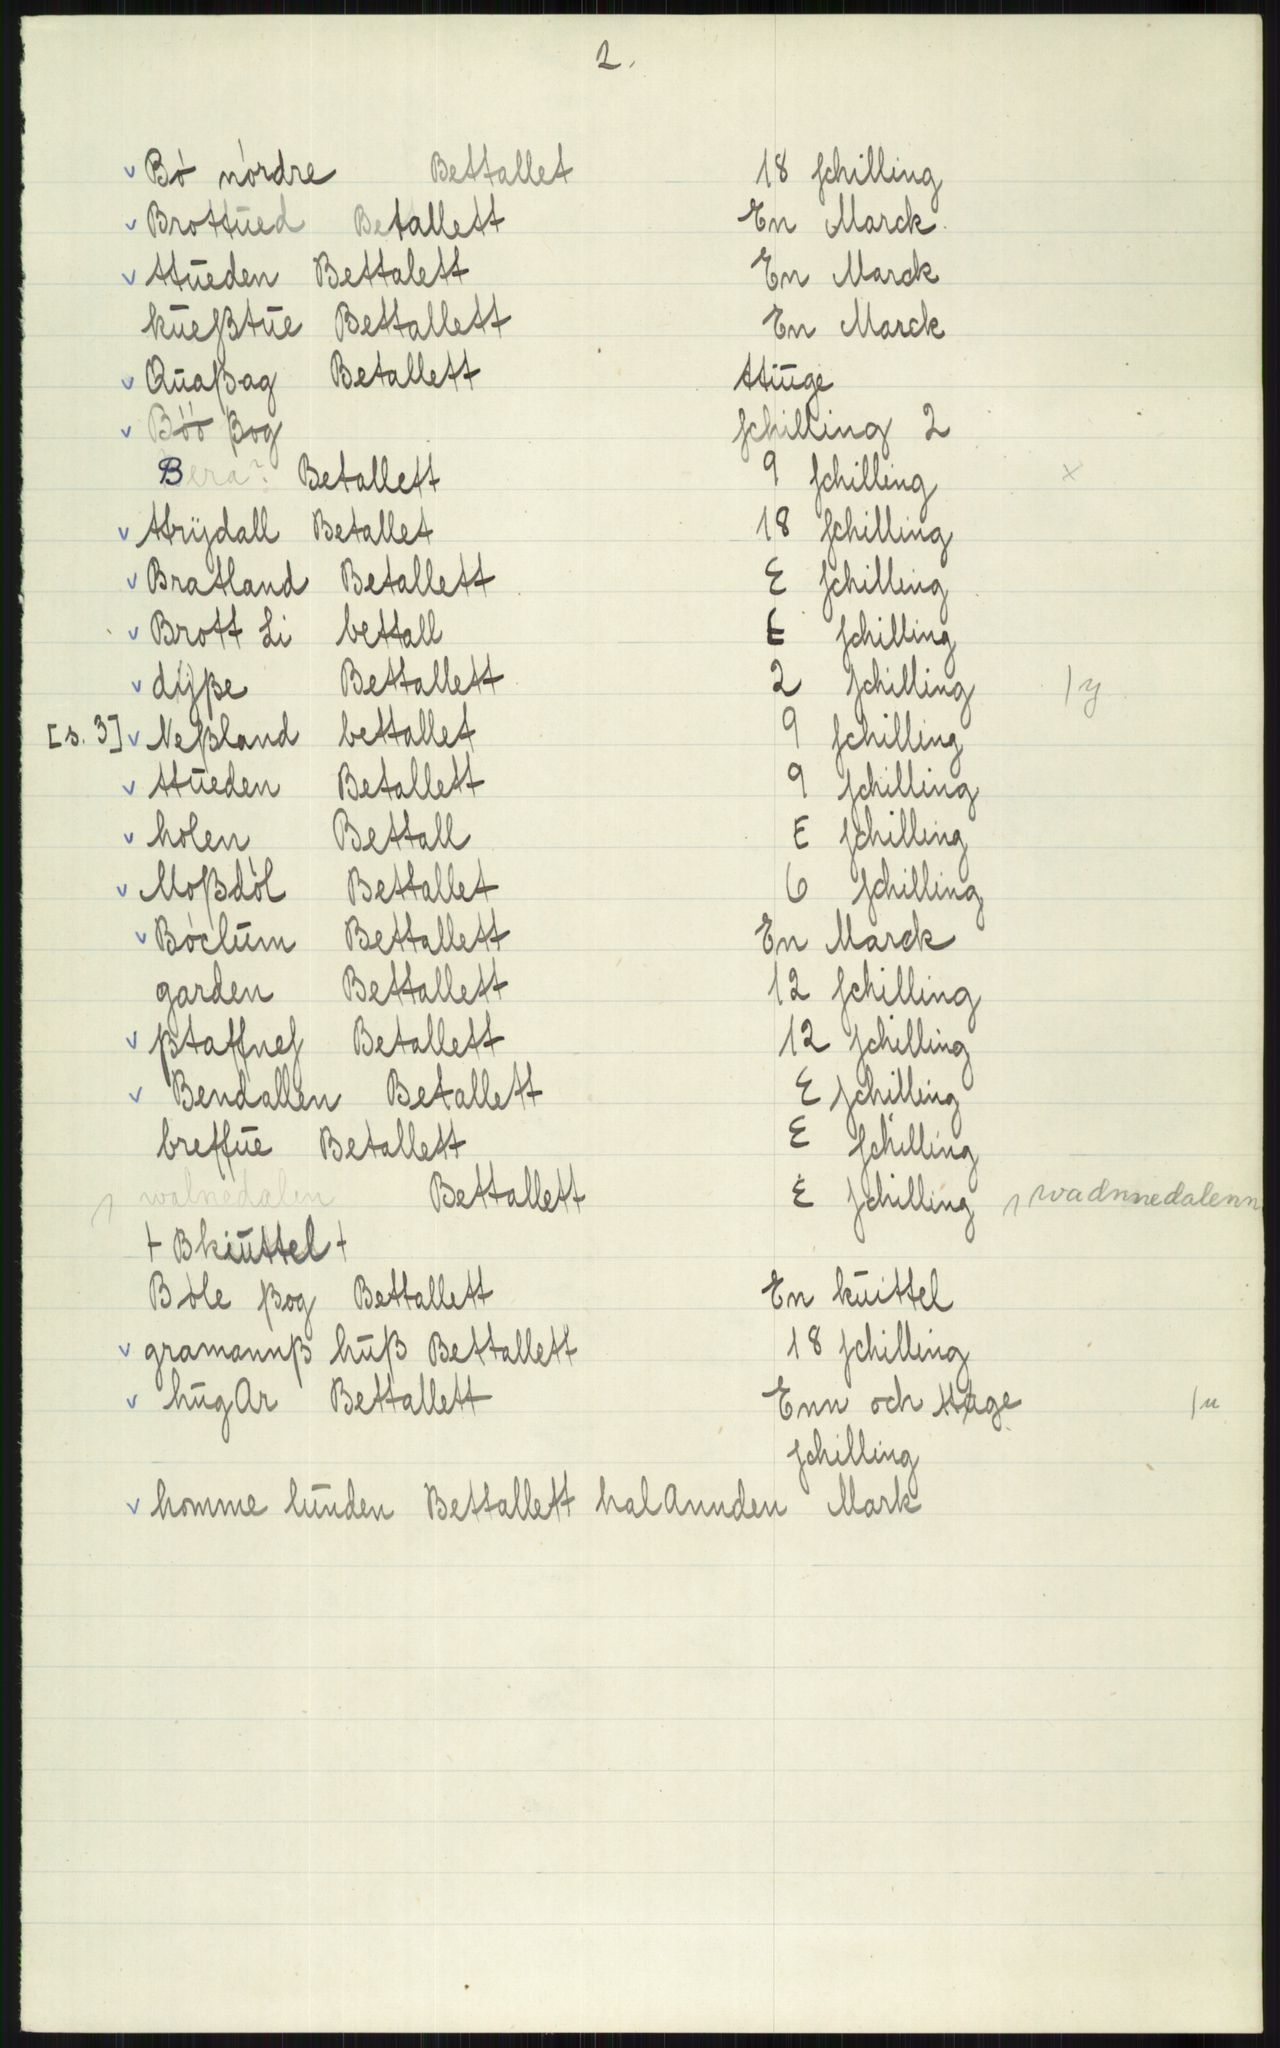 2.
v Bó nórdre Bettallet 18 schilling
v Brottůed Betallett En Marck
v ttůeden Bettalett En Marck
kůeßtůe Bettallett En Marck
v Qůaßag Betallett ttiůge
v Böö ßog schilling 2
Bera? Betallett 9 schilling x
v ttrÿdall Betallet 18 schilling
v Bratland Betallett E schilling
v Brott Li bettall E schilling
v dÿße Bettallett 2 schilling /y
[s. 3] v Neßland bettallet 9 schilling
v ttůeden Betallett 9 schilling
v holen Bettall E schilling
v Moßdòl Bettallet 6 schilling
v Bóclům Bettallett En Marck
garden Bettallett 12 schilling
v ßtaffnes Betallett 12 schilling
v Bendallen Betallett E schilling
breffůe Betallett E schilling
walnedalen Bettallett E schilling wadnnedalenn
+ Bkiůttel +
Bòle ßog Bettallett En kůittel
v gramannß hůß Bettallett 18 schilling
v hůgAr Bettallett Enn och ttůge /u
schilling
v homme lůnden Bettallett halAnnden Mark